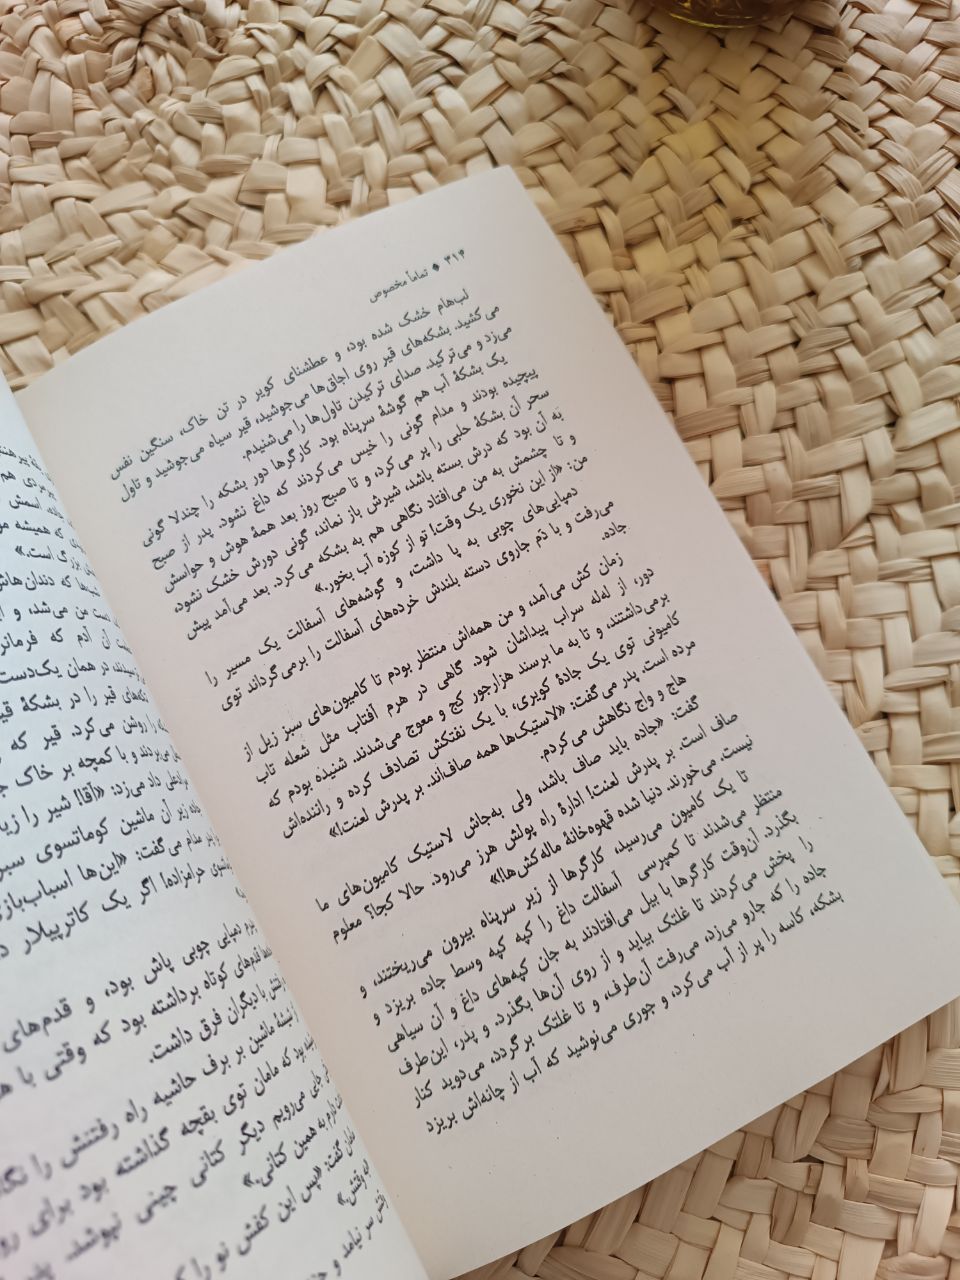 ۳۱۴ ◆ تماماً مخصوص
لب‌هام خشک شده بود، و عطشنای کویر در تن خاک، سنگین نفس
می‌کشید. بشکه‌های قیر روی اجاق‌ها می‌جوشید، قیر سیاه می‌جوشید و تاول
می‌زد و می‌ترکید. صدای ترکیدن تاول‌ها را می‌شنیدم.
یک بشکهٔ آب هم گوشهٔ سرپناه بود. کارگرها دور بشکه را چندلا گونی
پیچیده بودند و مدام گونی را خیس می‌کردند که داغ نشود. پدر از صبح
سحر آن بشکهٔ حلبی را پر می‌کرد، و تا صبح روز بعد همهٔ هوش و حواسش
به آن بود که درش بسته باشد، شیرش باز نماند، گونی دورش خشک نشود،
و تا چشمش به من می‌افتاد نگاهی هم به بشکه می‌کرد. بعد می‌آمد پیش
من: «از این نخوری یک وقت! تو از کوزه آب بخور.»
دمپایی‌های چوبی به پا داشت، و گوشه‌های آسفالت یک مسیر را
می‌رفت و با دَم جاروی دسته بلندش خرده‌های آسفالت را برمی‌گرداند توی
جاده.
زمان کش می‌آمد، و من همه‌اش منتظر بودم تا کامیون‌های سبز زیل از
دور، از له‌له سراب پیداشان شود. گاهی در هرم آفتاب مثل شعله تاب
برمی‌داشتند، و تا به ما برسند هزارجور کج و معوج می‌شدند. شنیده بودم که
کامیونی توی یک جادهٔ کویری، با یک نفتکش تصادف کرده و راننده‌اش
مرده است. پدر می‌گفت: «لاستیک‌ها همه صاف‌اند. بر پدرش لعنت!»
هاج و واج نگاهش می‌کردم.
گفت: «جاده باید صاف باشد، ولی به‌جاش لاستیک کامیون‌های ما
صاف است. بر پدرش لعنت! ادارهٔ راه پولش هرز می‌رود. حالا کجا؟ معلوم
نیست. می‌خورند. دنیا شده قهوه‌خانهٔ ماله‌کش‌ها!»
تا یک کامیون می‌رسید، کارگرها از زیر سرپناه بیرون می‌ریختند، و
منتظر می‌شدند تا کمپرسی آسفالت داغ را کپه کپه وسط جاده بریزد و
بگذرد. آن‌وقت کارگرها با بیل می‌افتادند به جان کپه‌های داغ و آن سیاهی
را پخش می‌کردند تا غلتک بیاید و از روی آن‌ها بگذرد. و پدر، این‌طرف
جاده را که جارو می‌زد، می‌رفت آن‌طرف، و تا غلتک برگردد، می‌دوید کنار
بشکه، کاسه را پر از آب می‌کرد، و جوری می‌نوشید که آب از چانه‌اش بریزد
اسمش
که همیشه
بزرگ است.»
که دندان‌هاش
من می‌شد، و
آن آدم که فرمانر
در همان یک‌دست
قیر را در بشکهٔ قیر
را روشن می‌کرد. قیر که
می‌بردند و با کمچه بر خاک
داد می‌زد: «آقا! شیر را
زیر آن ماشین کوماتسوی
مدام می‌گفت: «این‌ها اسباب‌بازی
حرامزاده! اگر یک کاترپیلار
دمپایی چوبی پاش بود، و قدم‌های
قدم‌های کوتاه برداشته بود که وقتی با
با دیگران فرق داشت.
ماشین بر برف حاشیه راه رفتنش را
بود که مامان توی بقچه گذاشته بود برای
جایی می‌رویم دیگر کتانی چینی نپوشد.
به همین کتانی.»
گفت: «پس این کفش نو را
سر نیامد. و